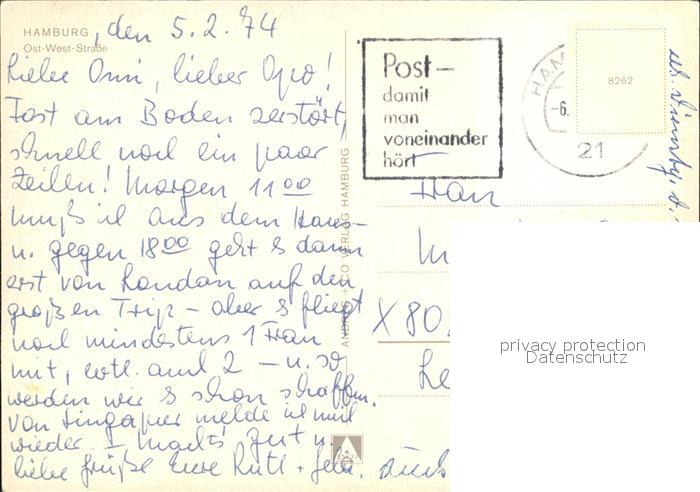 HAMBURG, den 5.2.74
Ost-West-Straße
Liebe Omi, lieber Opo!
Fast am Boden zerstört,
schnell noch ein paar
Zeilen! Morgen 11 00
muß ich aus dem Haus
u. gegen 18 00 geht es dann
erst von London auf den
großen Trip - aber es fliegt
noch mindestens 1 Frau
mit, evtl. auch 2 - u. so
werden wir es schon schaffen.
Von Singapur melde ich mich
wieder. Macht's gut u.
liebe Grüße Eure Ruth +
Post-
damit
man
voneinander
hört
HAM
-6.
21
8262
Frau
X 80
Le
ANDRES + CO VERLAG HAMBURG
privacy protection
Datenschutz